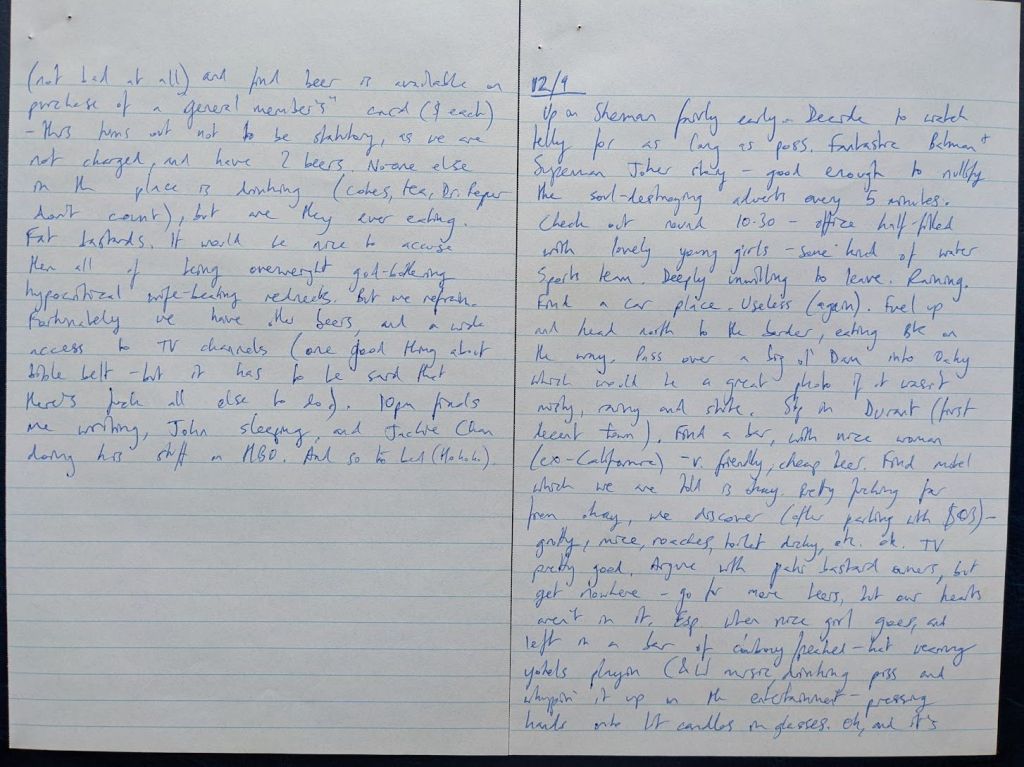 (not bad at all) and find beer is available on
purchase of a "general member's" card ($ each)
- this turns out not to be statutory, as we are
not charged, and have 2 beers. No-one else
in the place is drinking (cokes, tea, Dr. Peper
don't count), but are they ever eating.
Fat bastards. It would be nice to accuse
them all of being overweight god-bothering
hypocritical wife-beating rednecks. But we refrain.
Fortunately we have other beers, and a wide
access to TV channels (one good thing about
bible belt - but it has to be said that
there's fuck all else to do). 10pm finds
me writing, John sleeping, and Jackie Chan
doing his stuff on HBO. And so to bed (Hohoho).
12/9
Up in Sherman fairly early. Decide to watch
telly for as long as poss. Fantastic Batman +
Superman Joker story - good enough to nullify
the soul-destroying adverts every 5 minutes.
Check out round 10.30 - office half-filled
with lovely young girls - some kind of water
sports team. Deeply unwilling to leave. Raining.
Find a car place. Useless (again). Fuel up
and head north to the border, eating BK on
the way. Pass over a big ol' Dam into
which would be a great photo if it wasn't
misty, rainy and shite. Stop in Durant (first
decent town). Find a bar, with nice woman
(ex-California) - v. friendly, cheap beer. Find motel
which we are told is okay. Pretty fucking far
from okay, we discover (after parting with $03) -
grotty, mice, roaches, toilet dicky, etc. etc. TV
pretty good. Argue with paki bastard owners, but
get nowhere - go for more beers, but our hearts
aren't in it. Esp. when nice girl goes, and
left in a bar of cowboy freaks - hat wearing
yokels playin C&W music, drinking piss and
whuppin' it up in the entertainment - pressing
hands onto lit candles in glasses. Oh, and it's